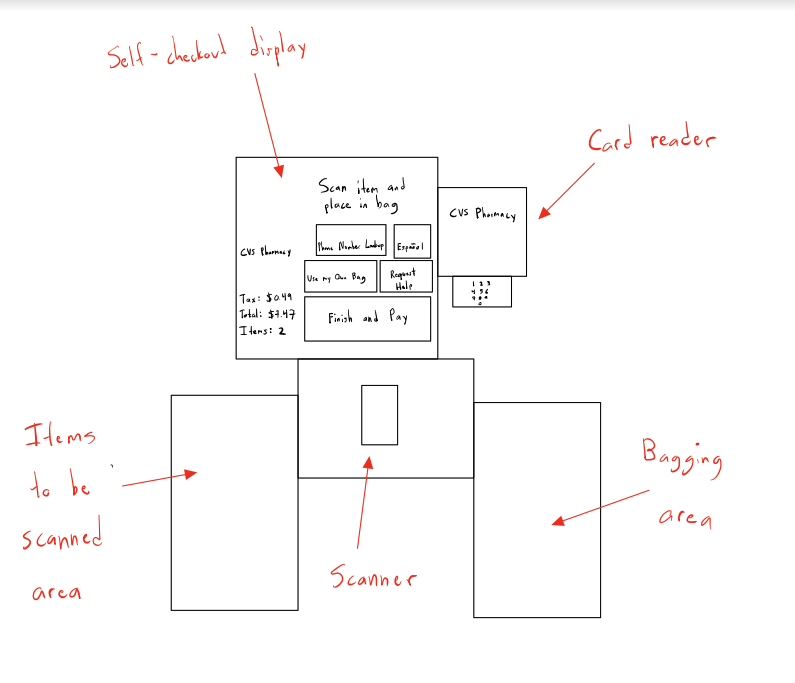 Self-checkout display
Card reader
Scan item and
place in bag
CVS Pharmacy
CVS Pharmacy
Phone Number Lookup
Español
Use my Own Bag
Request
Help
Tax: $0.49
Total: $7.47
Items: 2
Finish and Pay
1 2 3
4 5 6
7 8 9
0
Items
to be
scanned
area
Bagging
area
Scanner